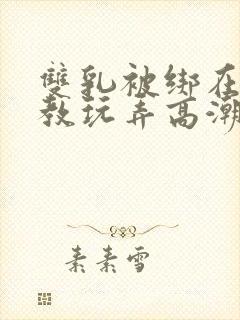 雙乳被绑在
教玩弄高潮
素素雪